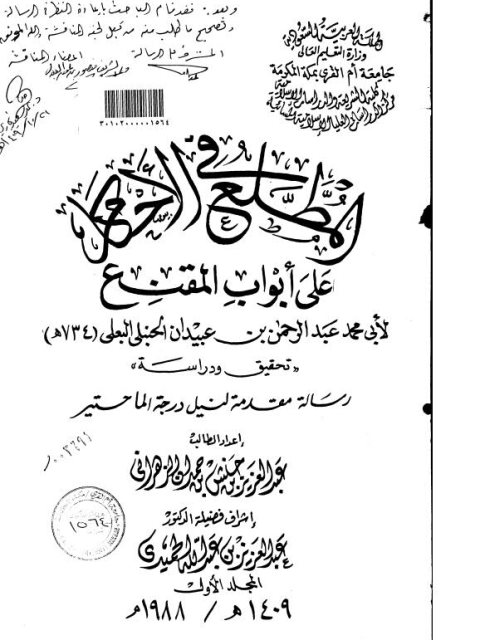 وبعد: فقد قام الباحث بإعادة النظر في الرسالة
وتصحيح ما طلب منه من قبل لجنة المناقشة
المشرف على الرسالة
أعضاء المناقشة
المملكة العربية السعودية
وزارة التعليم العالي
جامعة أم القرى بمكة المكرمة
كلية الشريعة والدراسات الإسلامية
مركز الدراسات العليا الإسلامية
٣٠١٠٢٠٠٠٠٠١٥٦٤
المطلع في الأحكام
على أبواب المقنع
لأبي محمد عبد الرحمن بن عبيدان الحنبلي البعلي (٧٣٤هـ)
«تحقيق ودراسة»
رسالة مقدمة لنيل درجة الماجستير
إعداد الطالب
عبد العزيز بن حنش بن حمدان الزهراني
إشراف فضيلة الدكتور
عبد العزيز بن عبد الله الحميدي
المجلد الأول
١٤٠٩هـ / ١٩٨٨م
١٥٦٤